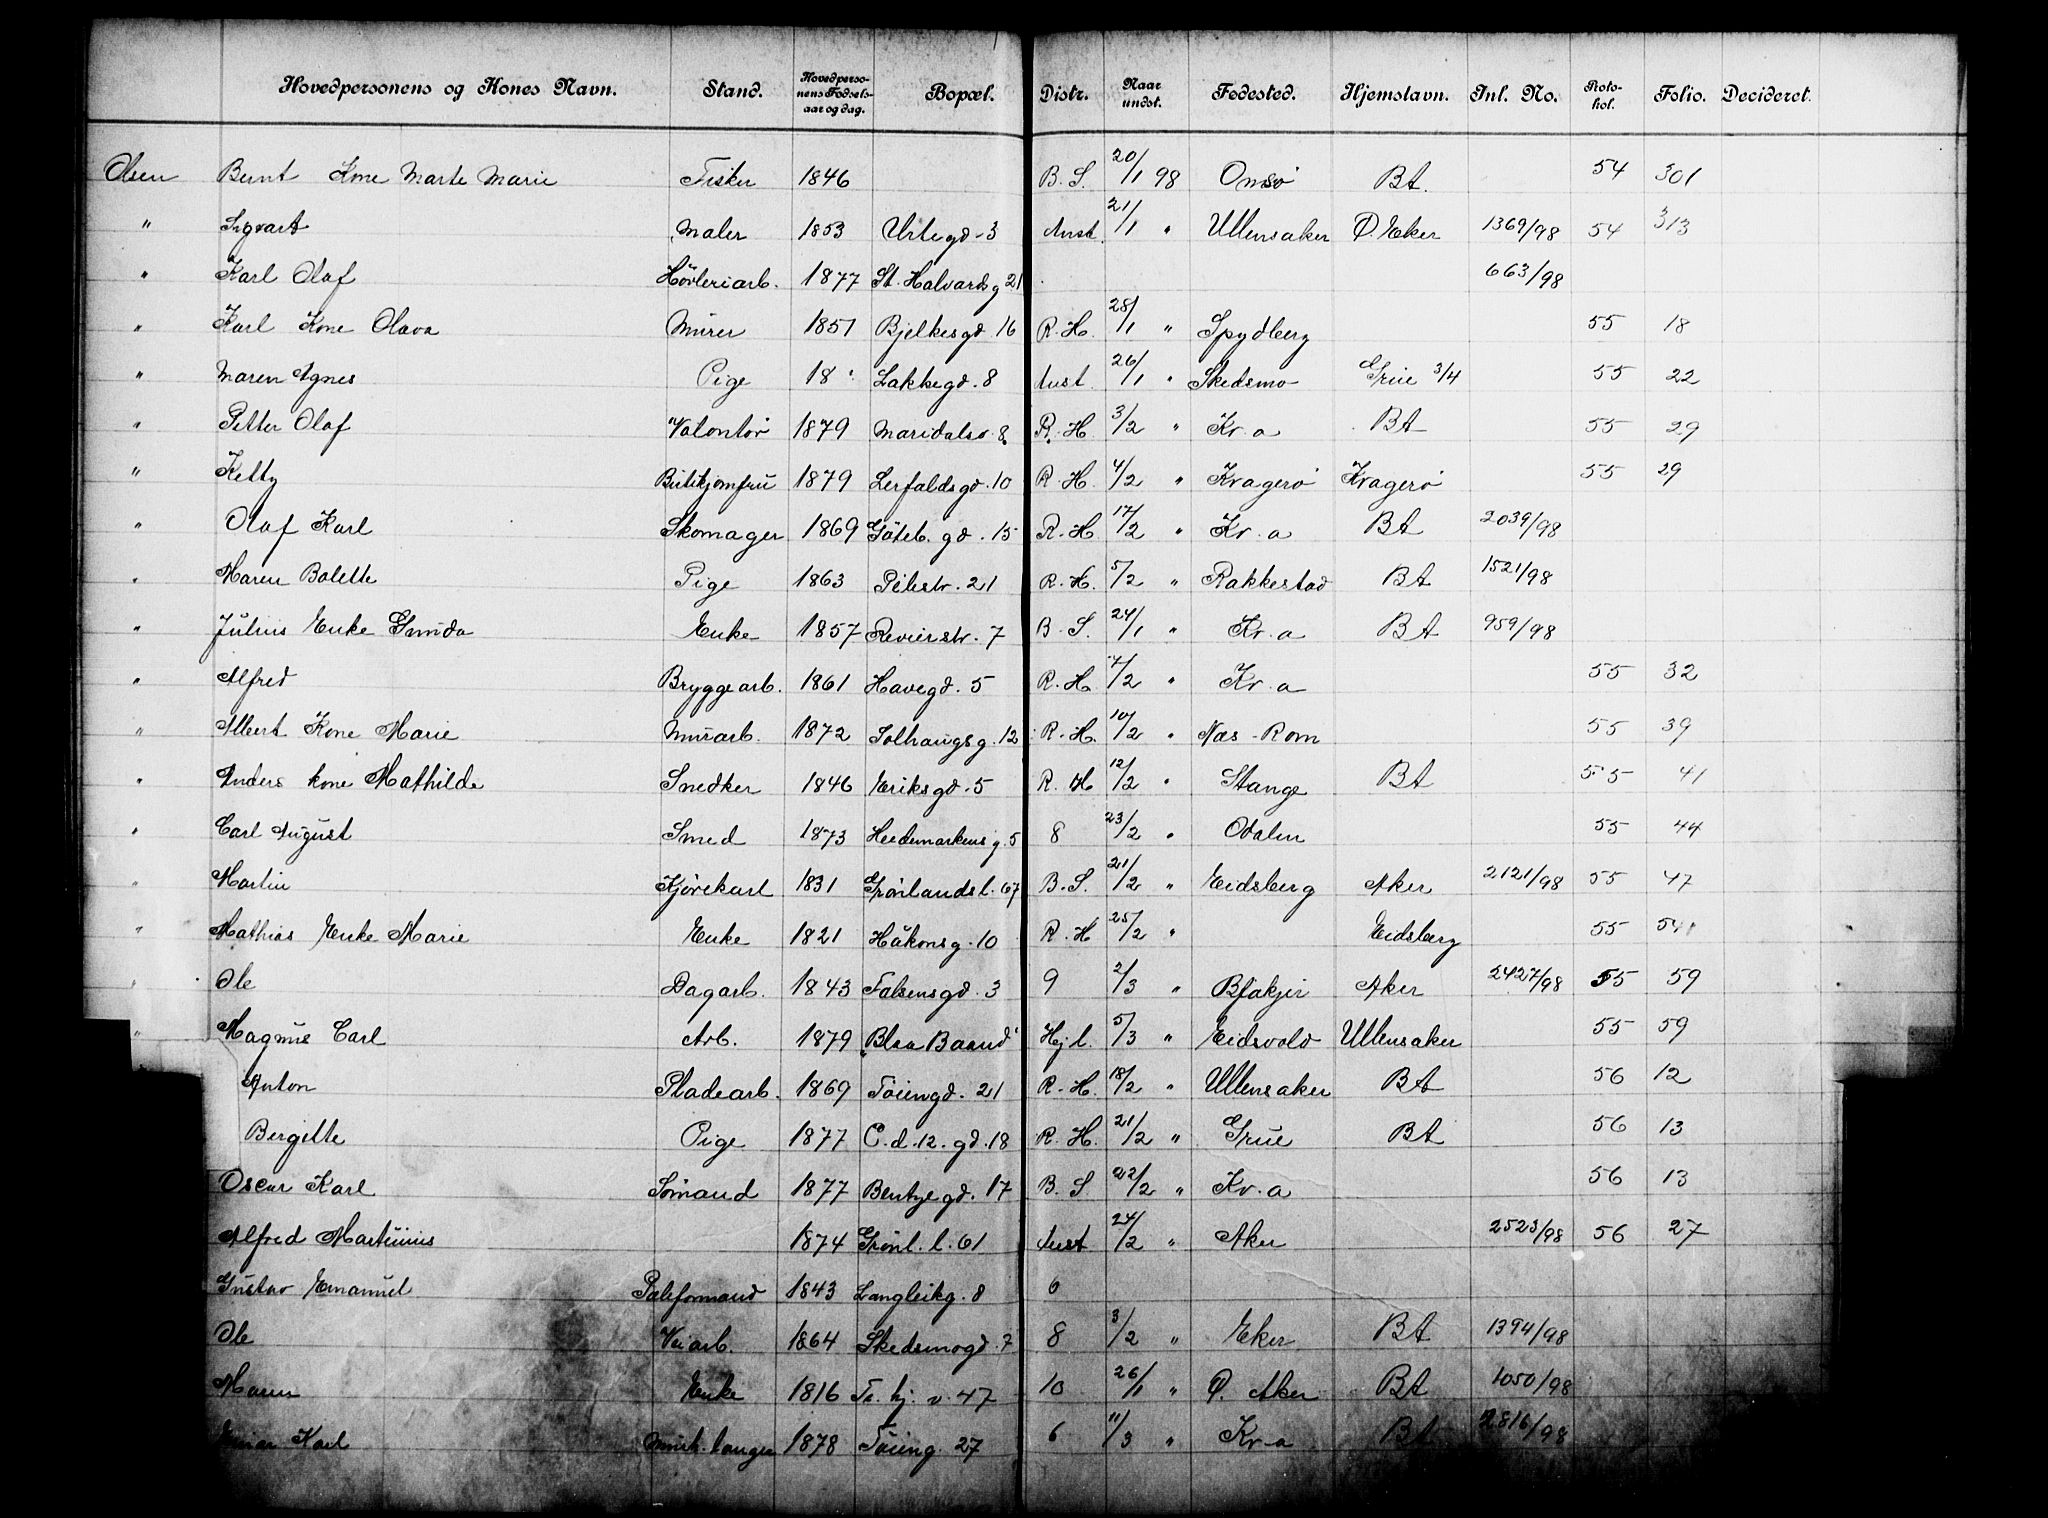 Hovedpersonens og Kones Navn. Stand. Hovedpersonens Fødselsaar og dag. Bopæl. Distr. Naar undst. Fødested. Hjemstavn. Inl. No. Protokol. Folio. Decideret.
Olsen Bernt Kone Marte Marie Fisker 1846 B. S. 20/1 98 Onsø BA. 54 301
" Sigvart Maler 1853 Urtegd. 3 Aust. 21/1 " Ullensaker Ø. Eker 1369/98 54 313
" Karl Olaf Høvleriarb. 1877 St. Halvards g 21 663/98
" Karl Kone Olava Murer 1851 Bjelkesgd 16 R. H. 28/1 " Spydberg 55 18
" Maren Agnes Pige 18 Lakkegd. 8 Aust. 26/1 " Skedsmo Grue 3/4 55 22
" Petter Olaf Volontør 1879 Maridalsv. 8 R. H. 3/2 " Kr.a BA 55 29
" Ketty Butikjomfru 1879 Lerfaldsgd. 10 R. H. 4/2 " Kragerø Kragerø 55 29
" Olaf Karl Skomager 1869 Göteb. gd. 15 R. H 17/2 " Kr.a BA 2039/98
" Maren Bolette Pige 1863 Pilestr. 21 R. H. 5/2 " Rakkestad BA 1521/98
" Julius Enke Gunda Enke 1857 Revierstr. 7 B. S. 24/1 " Kr.a BA 959/98
" Alfred Bryggearb. 1861 Havegd. 5 R. H. 7/2 " Kr.a 55 32
" Albert Kone Marie Murarb. 1872 Solhaugsg. 12 R. H. 10/2 " Næs - Rom 55 39
" Anders Kone Mathilde Snedker 1846 Eriksgd. 5 R. H 12/2 " Stange BA 55 41
" Carl August Smed 1873 Hedemarkens g. 5 8 23/2 " Odalen 55 44
" Martin Kjørekarl 1831 Grønlandsl. 67 B. S. 21/2 " Eidsberg Aker 2121/98 55 47
" Mathias Enke Marie Enke 1821 Håkonsg. 10 R. H 25/2 " Eidsberg 55 54
" Ole Dagarb. 1843 Falsensgd. 3 9 2/3 " Aker 2427/98 55 59
" Magnus Carl Arb. 1879 "Blaa Baand" Hj. l. 5/3 " Eidsvold Ullensaker 55 59
Anton Pladearb. 1869 Tøiengd. 21 R. H. 18/2 " Ullensaker BA 56 12
Bergitte Pige 1877 C. d. 12. gd. 18 R. H. 21/2 " Grue BA 56 13
Oscar Karl Sømand 1877 Bentsegd. 17 B. S 22/2 " Kr.a 56 13
Alfred Martinius 1874 Grønl. l. 61 Aust 24/2 " Aker 2523/98 56 27
Gustav Emanuel Paleformand 1843 Langleikg. 8 6
Ole Veiarb. 1864 Skedsmogd. 7 8 3/2 " Eker BA 1394/98
Maren Enke 1816 Tr. hj. v. 47 10 26/1 " Ø. Aker BA 1050/98
Einar Karl 1878 Tøieng. 27 6 11/3 " Kr.a BA 2816/98